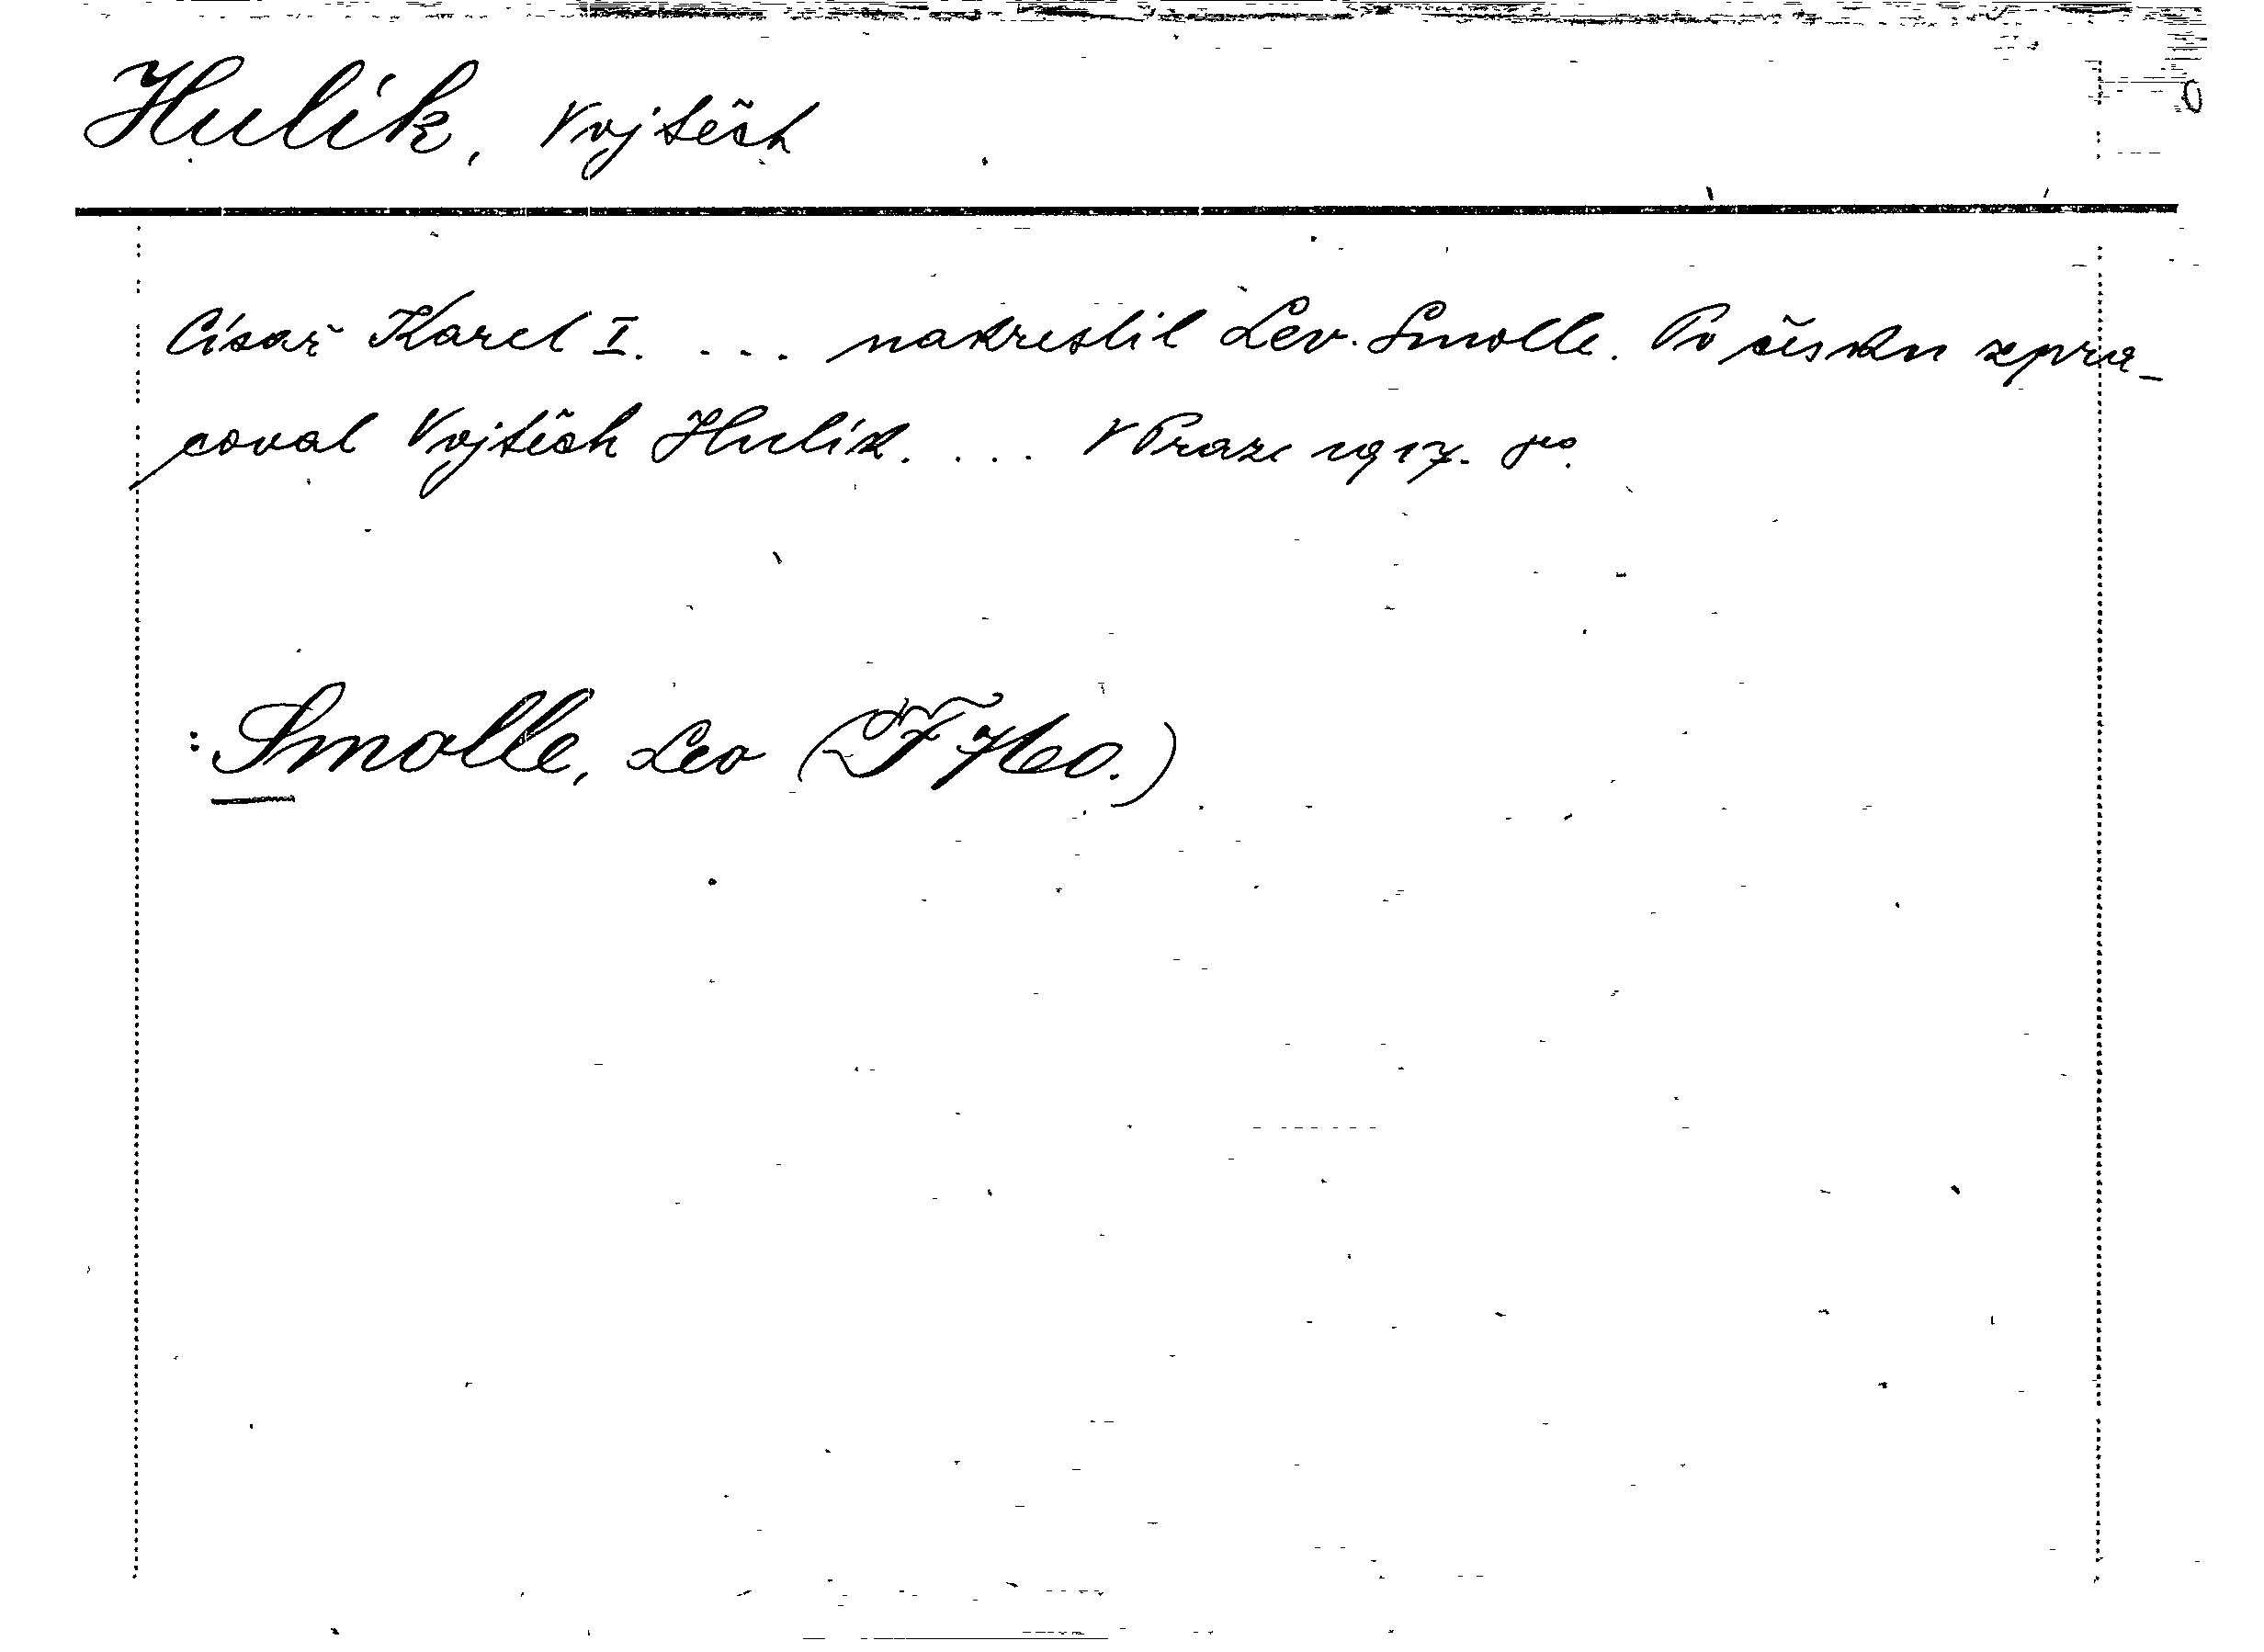 Hulík, Vojtěch
Císař Karel I. ... nakreslil Lev. Smolle. Po česku zpra-
coval Vojtěch Hulík. ... V Praze 1917. 8º.
: Smolle, Leo